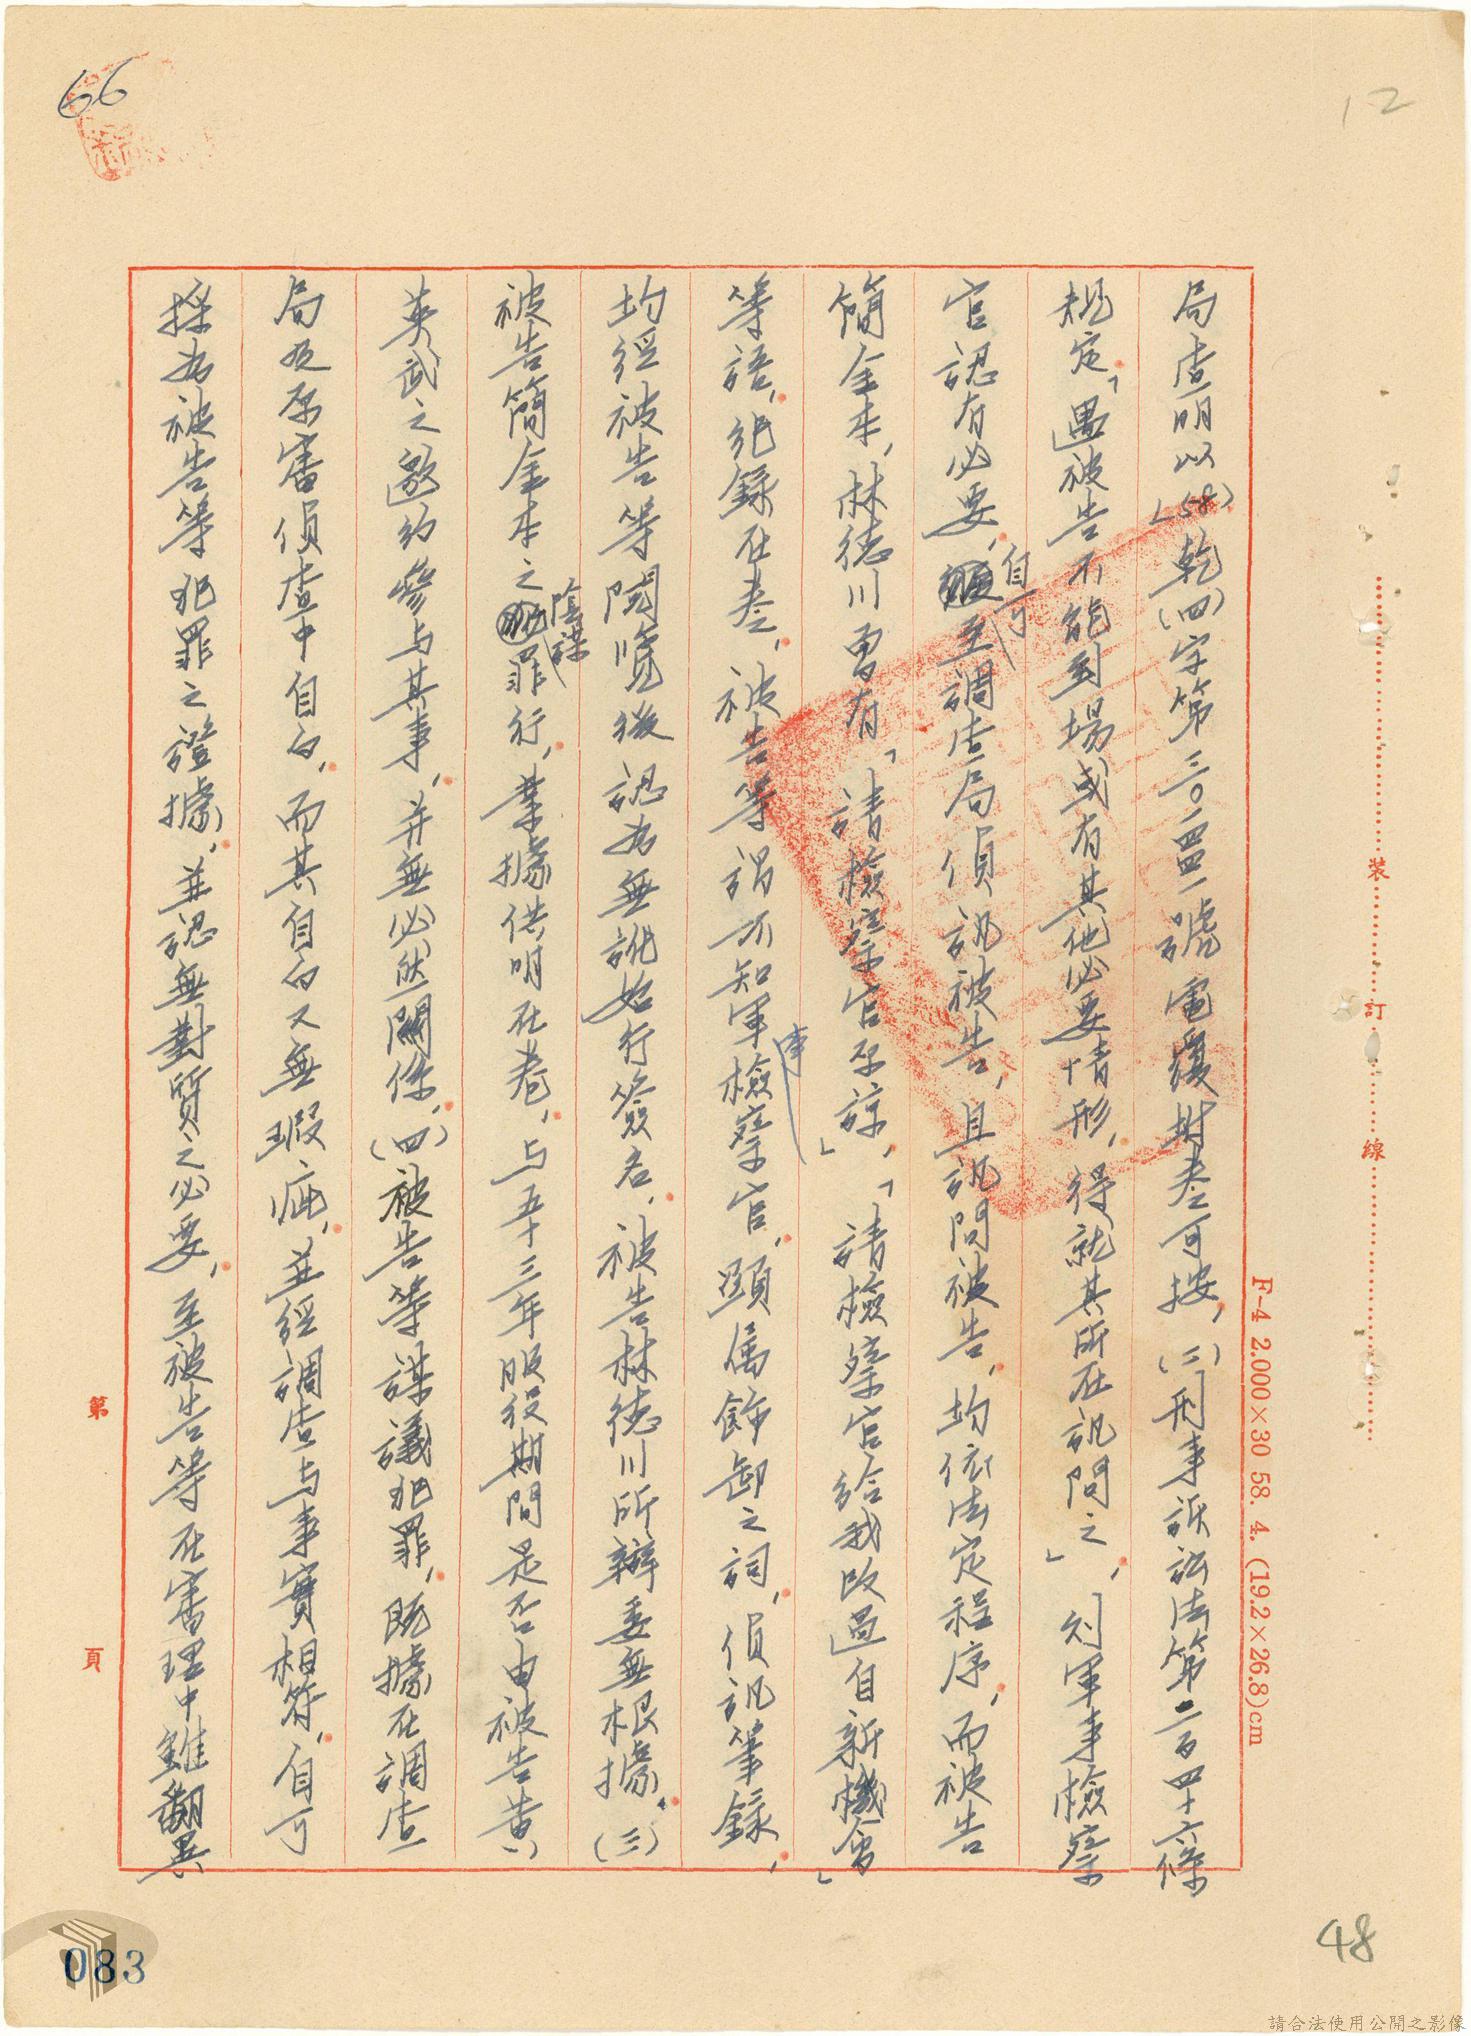 66
12
局查明以(58)乾(四)字第三〇一四四一號電覆附卷可按，(二)刑事訴訟法第二百四十六條
規定「遇被告不能到場或有其他必要情形，得就其所在訊問之」，則軍事檢察
官認有必要，自可至調查局偵訊被告，且訊問被告，均依法定程序，而被告
簡金本，林德川曾有「請檢察官原諒」，「請檢察官給我改過自新機會」
等語，紀錄在卷，被告等謂不知軍事檢察官，顯属飾卸之詞，偵訊筆錄，
均經被告等閱覽後認為無訛始行簽名，被告林德川所辯委無根據，(三)
被告簡金本之陰謀罪行，業據供明在卷，与五十三年服役期間是否由被告黄
英武之邀約參与其事，并無必然關係，(四)被告等謀議犯罪，既據在調查
局及原審偵查中自白，而其自白又無瑕疵，並經調查与事實相符，自可
採为被告等犯罪之證據，並認無對質之必要，至被告等在審理中雖翻異
裝
訂
線
F-4 2.000×30 58. 4. (19.2×26.8)cm
第
頁
083
48
請合法使用公開之影像